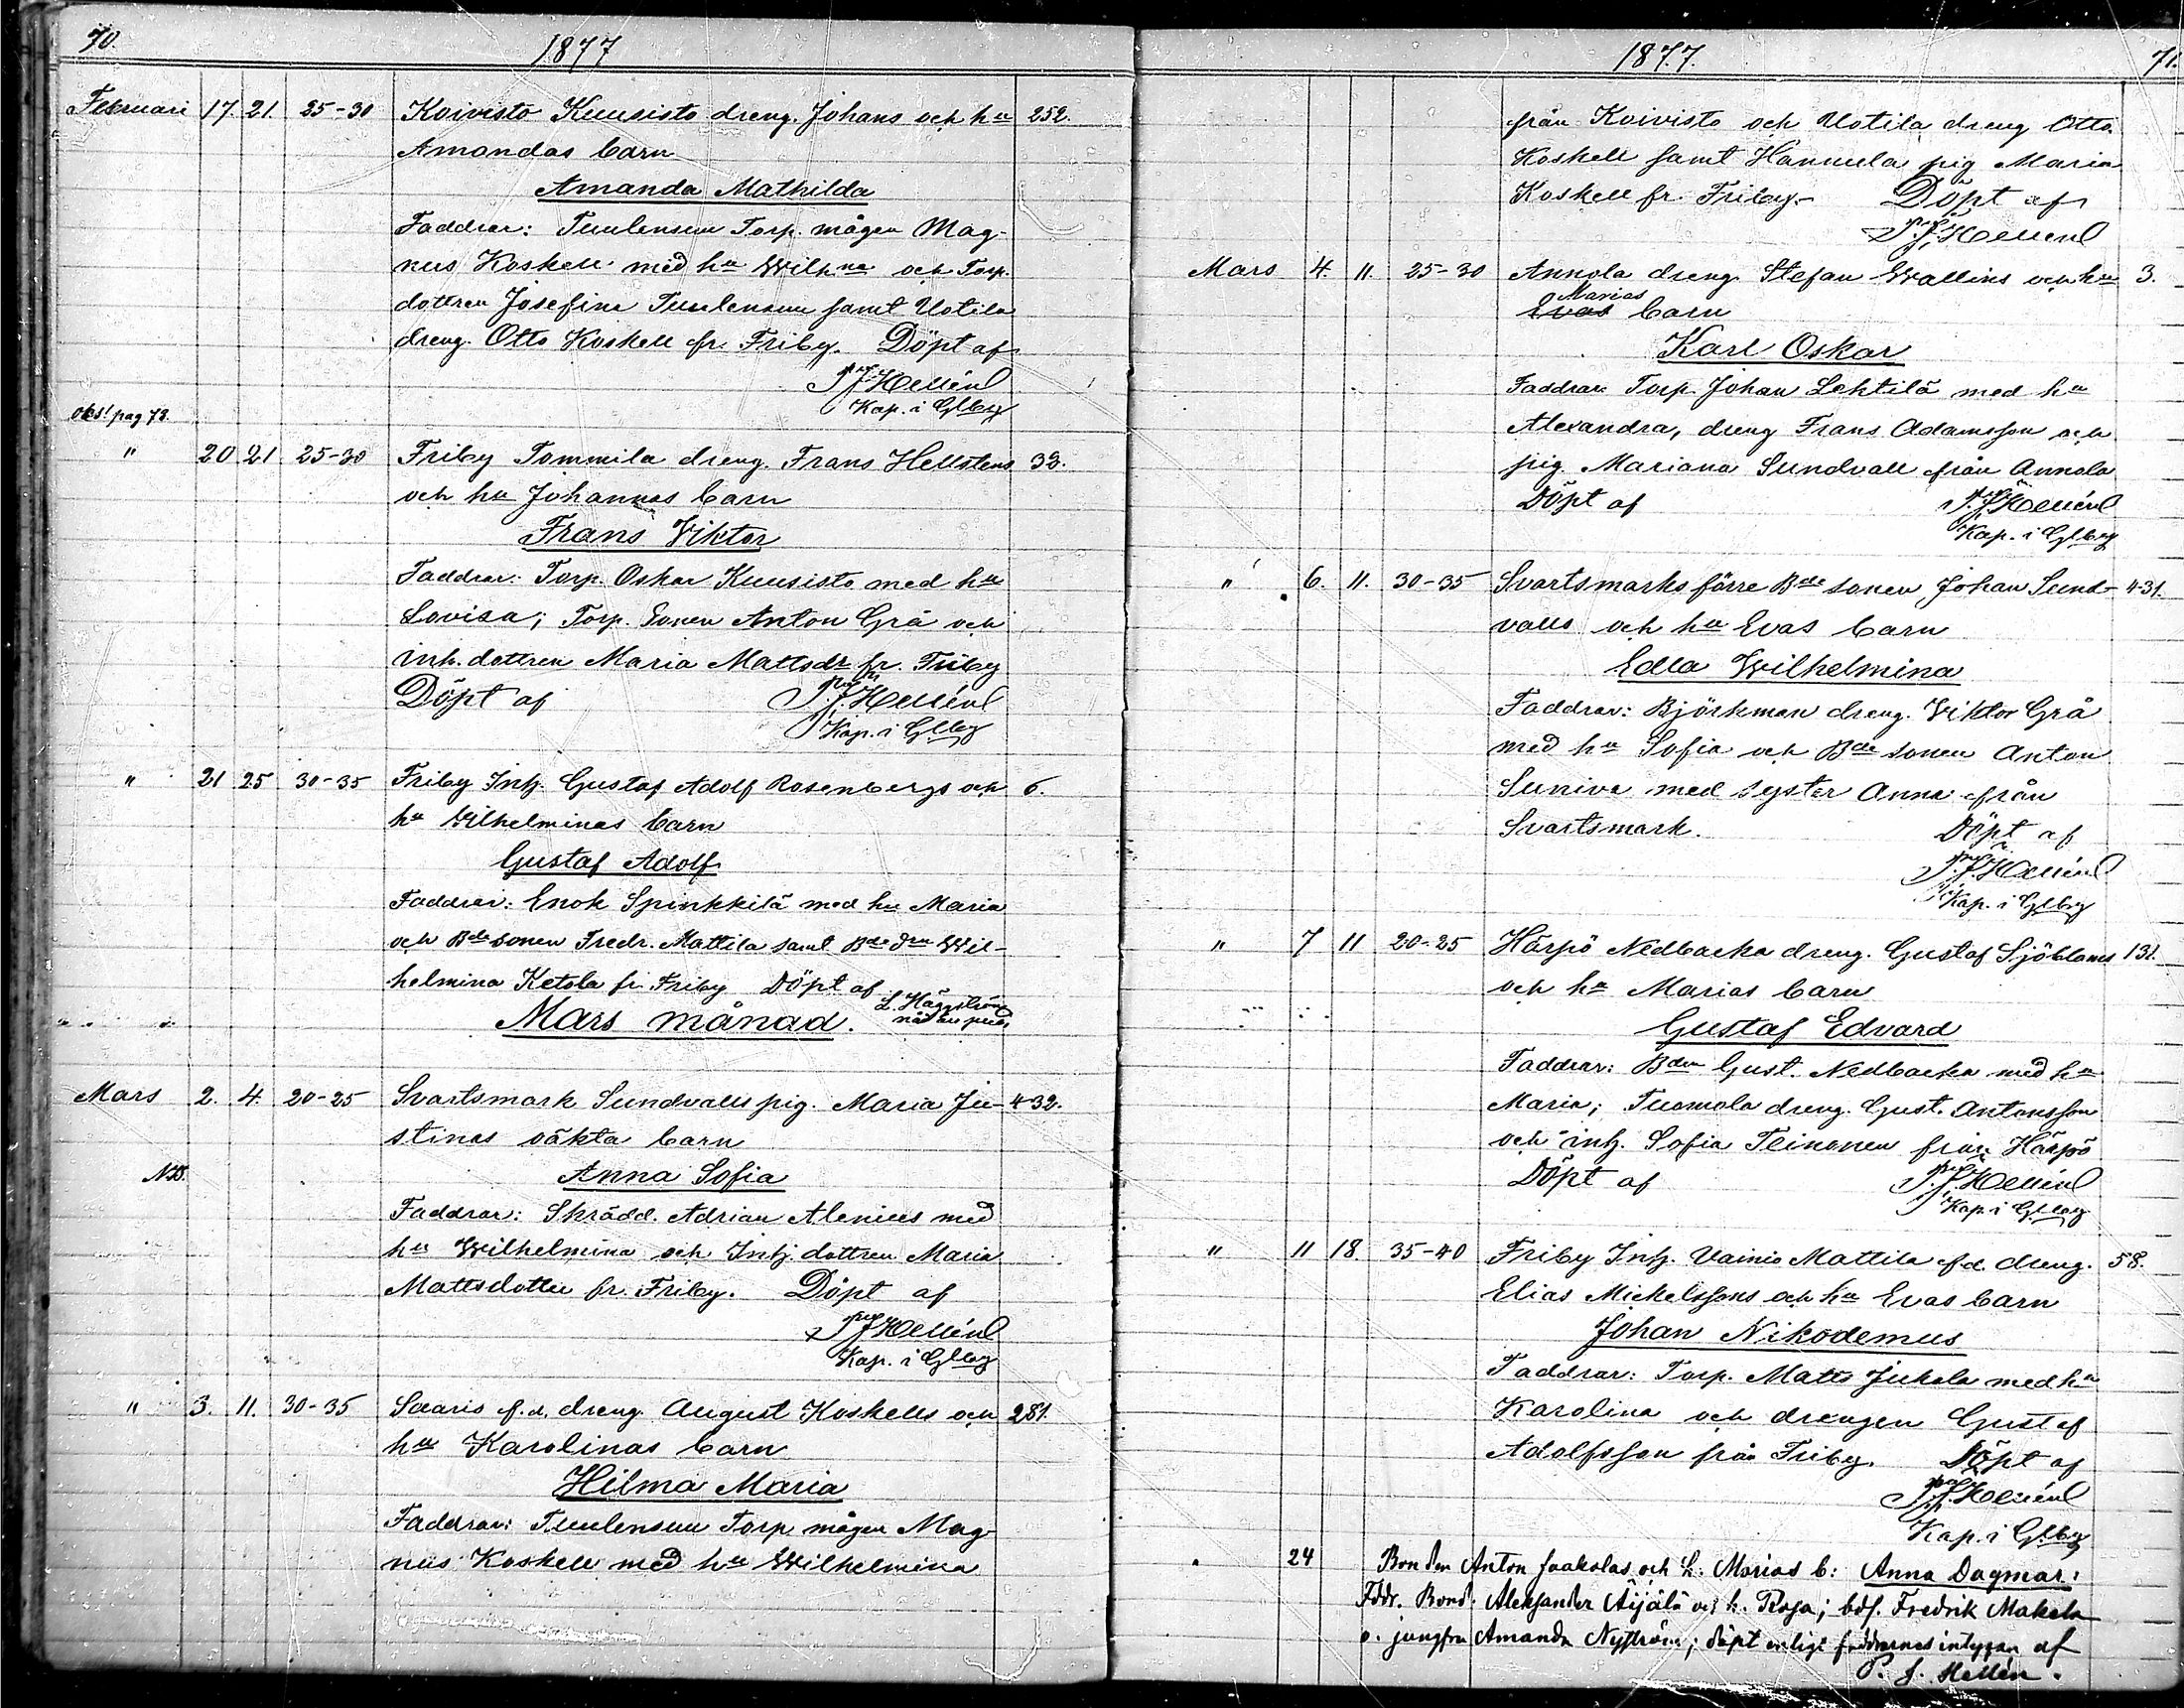 70.
1877
Februari 17. 21. 25-30 Koivisto Kuusisto dreng. Johans och hu 252.
Amandas barn
Amanda Mathilda
Faddrar: Tuulensuu Torp. mågen Mag-
nus Koskell med hu Wilhna och Torp.
dottren Josefina Tuulensuu samt Uotila
dreng. Otto Koskell fr. Friby. Döpt af
P. J. Hellén
Kap. i Glby
obs! pag 73.
" 20 21 25-30 Friby Tommila dreng. Frans Hellstens 32.
och hu Johannas barn
Frans Viktor
Faddrar: Torp. Oskar Kuusisto med hu
Lovisa; Torp. Sonen Anton Grå och
inh. dottren Maria Mattsdr fr. Friby
Döpt af P. J. Hellén
Kap. i Glby
" 21 25 30-35 Friby Inh. Gustaf Adolf Rosenbergs och 6.
hu Vilhelminas barn
Gustaf Adolf
Faddrar: Enok Spinkkilä med hu Maria
och Bde sonen Fredr. Mattila samt Bde dtn Wil-
helmina Ketola fr. Friby Döpt af L. Häggström
Mars månad.
Mars 2. 4. 20-25 Svartsmark Sundvalls pig. Maria Ju- 432.
stinas oäkta barn
NB. Anna Sofia
Faddrar: Skrädd. Adrian Alenius med
hu Wilhelmina och Inh. dottren Maria
Mattsdotter fr. Friby. Döpt af
P J Hellén
Kap. i Glby
" 3. 11. 30-35 Saaris f.d. dreng August Koskells och 281.
hu Karolinas barn
Hilma Maria
Faddrar: Tuulensuu Torp. mågen Mag-
nus Koskell med hu Wilhelmina
1877.
71.
från Koivisto och Uotila dreng Otto
Koskell samt Hannula pig Maria
Koskell fr. Friby.- Döpt af
P. J. Hellén
Mars 4. 11. 25-30 Annola dreng Stefan Wallins och hu 3.
Marias
Evas barn
Karl Oskar
Faddrar Torp. Johan Lehtilä med hu
Alexandra, dreng Frans Adamsson och
pig. Mariana Sundvall från Annola
Döpt af P. J. Hellén
Kap. i Glby
" 6. 11. 30-35 Svartsmarks förre Bde sonen Johan Sund- 431.
valls och hu Evas barn
Edla Wilhelmina
Faddrar: Björkman dreng. Viktor Grå
med hu Sofia och Bde sonen Anton
Suniva med syster Anna från
Svartsmark. Döpt af
P. J. Hellén
Kap. i Glby
" 7 11 20-25 Härpö Nedbacka dreng. Gustaf Sjöbloms 131.
och hu Marias barn
Gustaf Edvard
Faddrar: Bden Gust. Nedbacka med hu
Maria; Tuomola dreng. Gust. Antonsson
och inh. Sofia Teinonen från Härpö
Döpt af P. J. Hellén
Kap. i Glby
" 11 18. 35-40 Friby Inh. Vainio Mattila f.d. dreng. 58.
Elias Mickelssons och hu Evas barn
Johan Nikodemus
Faddrar: Torp. Matts Jukola med hu
Karolina och drengen Gustaf
Adolfsson från Friby. Döpt af
P. J. Hellén
Kap. i Glby
" 24 Bonden Anton Jaakolas och h. Marias b: Anna Dagmar:
Fddr. Bond. Aleksander Äijälä o. h. Rosa; bds. Fredrik Makela
o. jungfru Amanda Nyström; döpt enligt faddrarnas intygan af
P. J. Hellén.